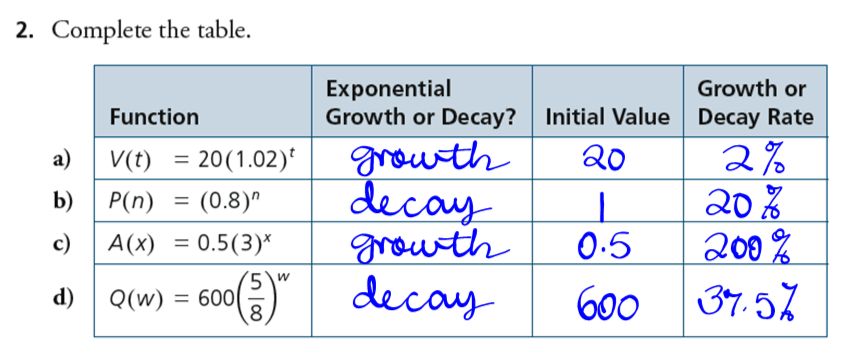 2. Complete the table.
Function | Exponential Growth or Decay? | Initial Value | Growth or Decay Rate
a) V(t) = 20(1.02)^t | growth | 20 | 2%
b) P(n) = (0.8)^n | decay | 1 | 20%
c) A(x) = 0.5(3)^x | growth | 0.5 | 200%
d) Q(w) = 600(5/8)^w | decay | 600 | 37.5%